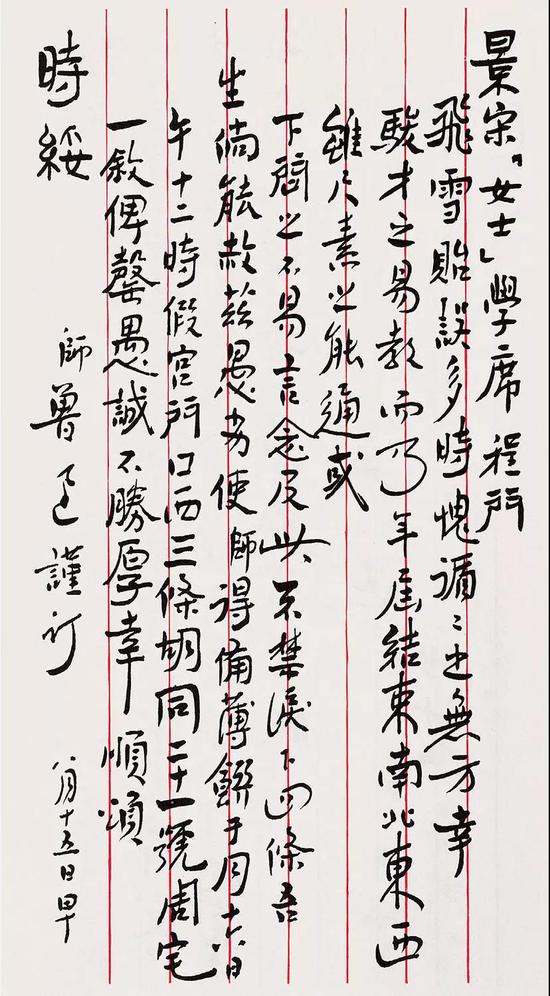 景宋「女士」學席 程門
飛雪貽誤多時愧循〻之無方幸
駿才之易教而乃年屆結束南北東西
雖尺素之能通或
下問之不易言念及此不禁淚下四條吾
生倘能赦茲愚劣使師得備薄饌于月十六日
午十二時假宮門口西三條胡同二十一號周宅
一敘俾罄愚誠不勝厚幸 順頌
時綏
師魯迅謹訂 八月十五日早